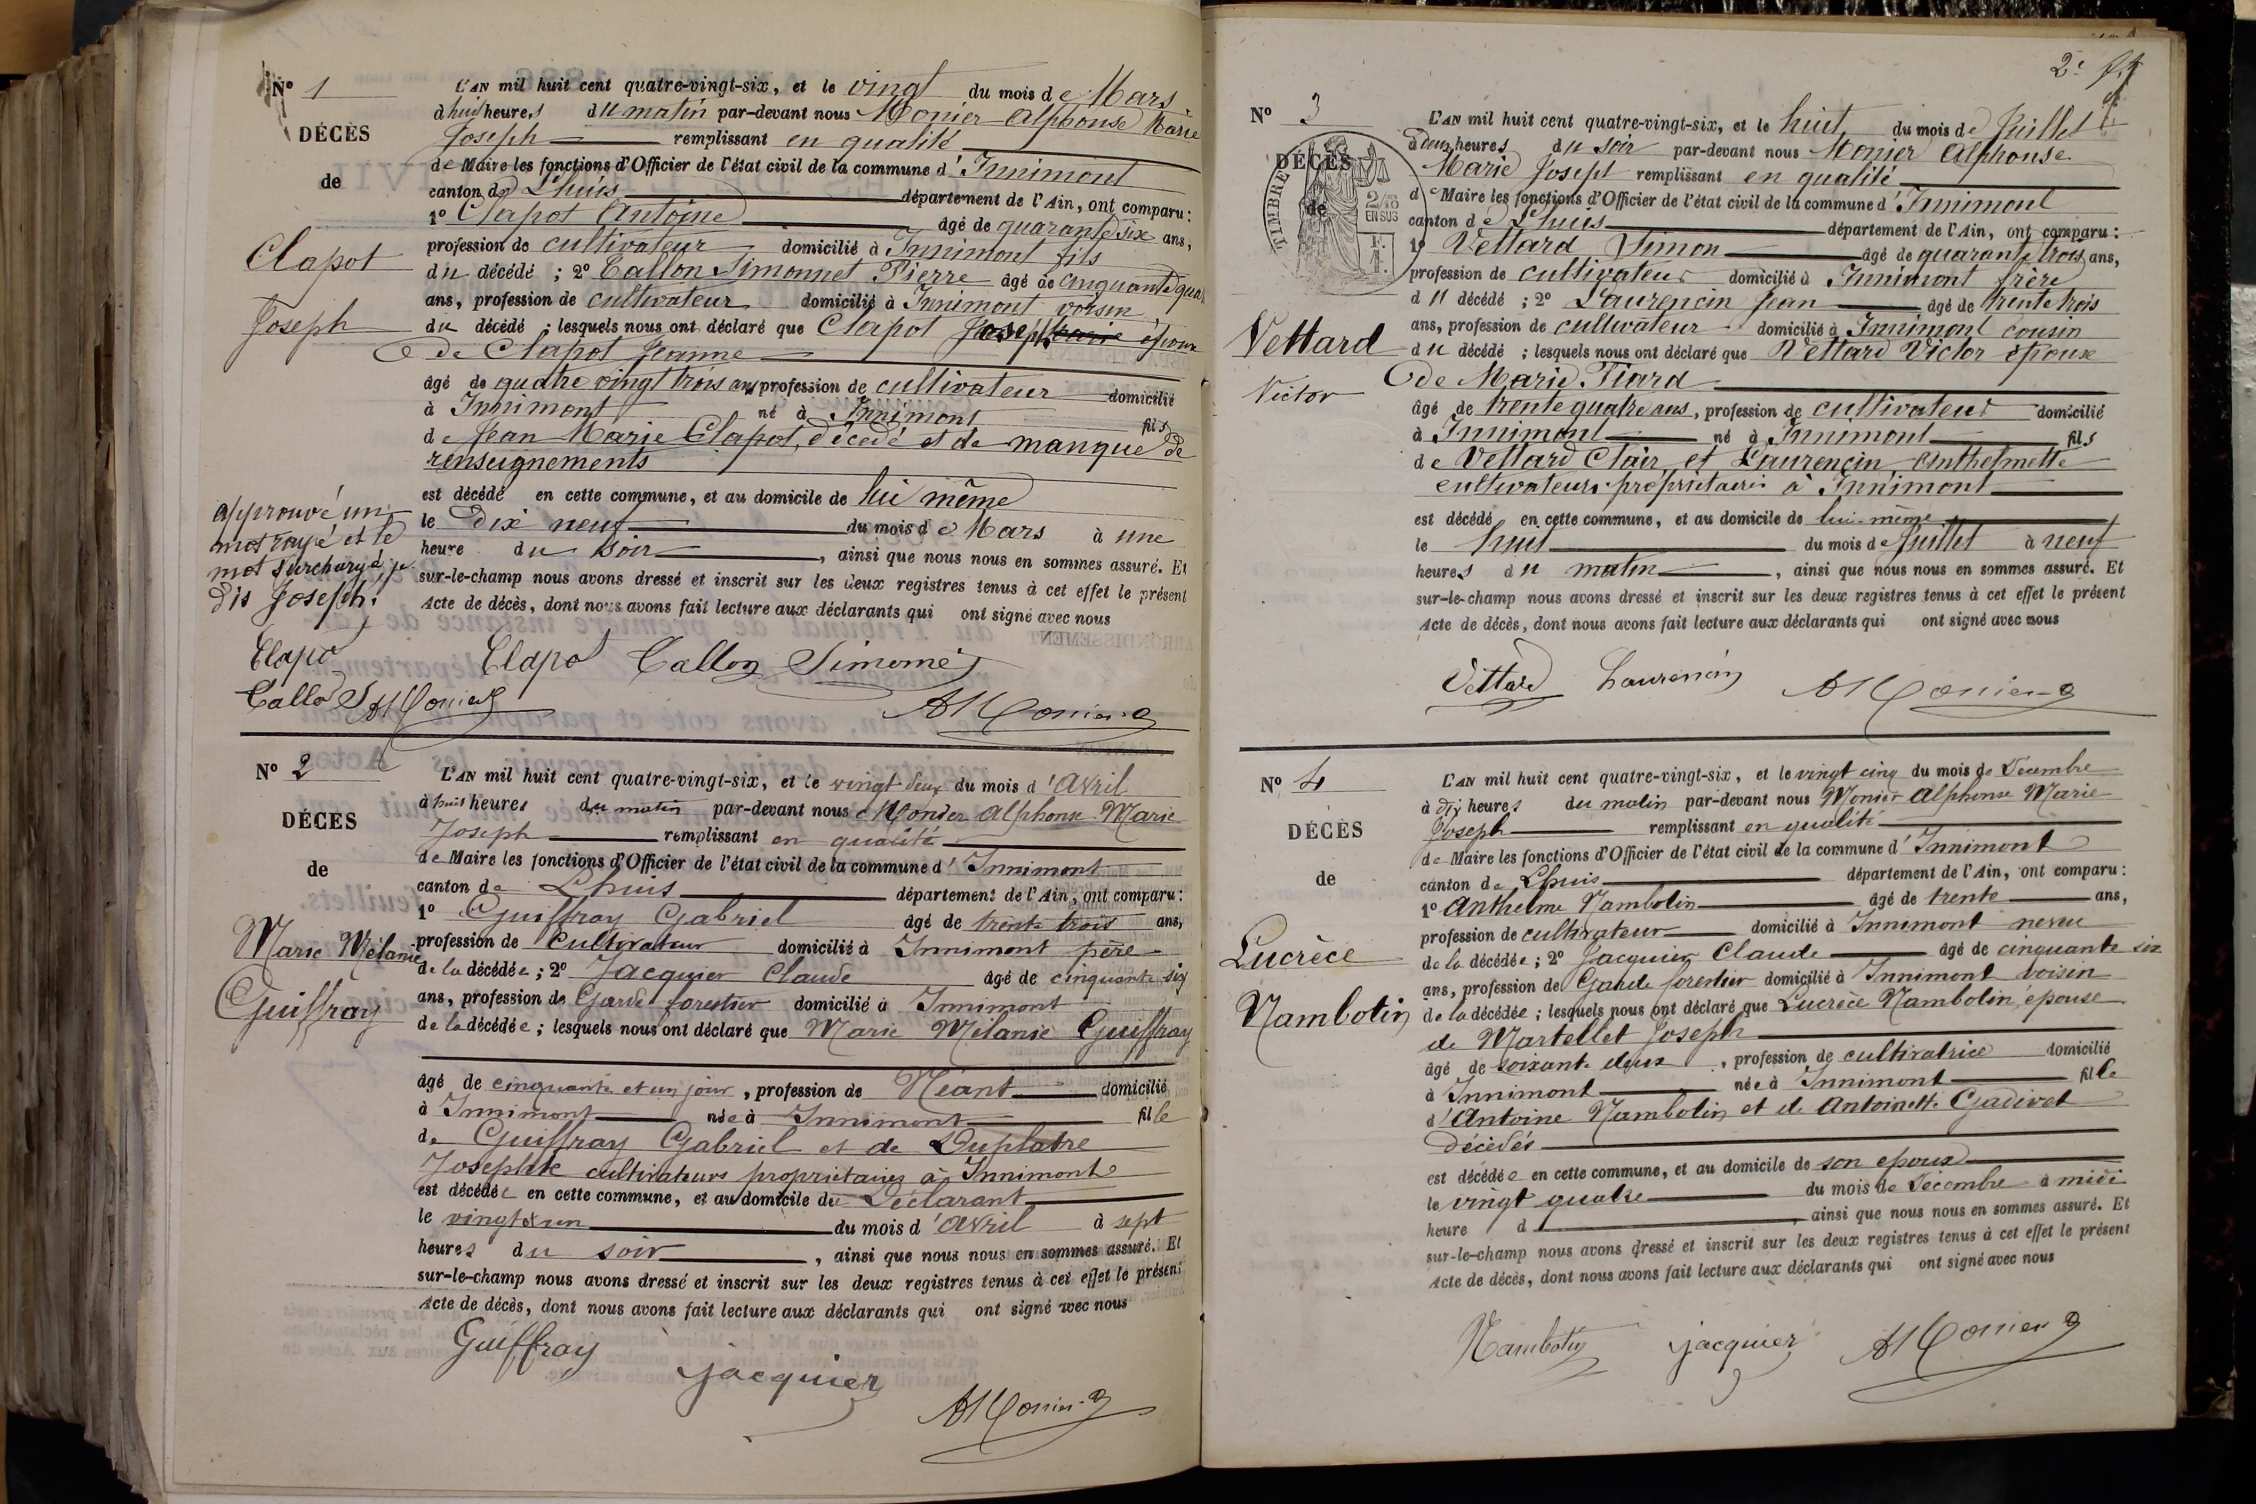 Nº 1
DÉCÈS
de
Clapot
Joseph
L'AN mil huit cent quatre-vingt-six, et le vingt du mois de Mars
à huit heures du matin par-devant nous Monier Alphonse Marie
Joseph remplissant en qualité
de Maire les fonctions d'Officier de l'état civil de la commune d'Innimont
canton de Lhuis département de l'Ain, ont comparu :
1º Clapot Antoine âgé de quarante six ans,
profession de cultivateur domicilié à Innimont fils
du décédé ; 2º Callon Simonnet Pierre âgé de cinquante quat
ans, profession de cultivateur domicilié à Innimont voisin
du décédé ; lesquels nous ont déclaré que Clapot Joseph Marie époux
de Clapot Jeanne
âgé de quatre vingt trois ans, profession de cultivateur domicilié
à Innimont né à Innimont fils
de Jean Marie Clapot, décédé et de manque de
renseignements
est décédé en cette commune, et au domicile de lui même
le Dix neuf du mois de Mars à une
heure du soir, ainsi que nous nous en sommes assuré. Et
sur-le-champ nous avons dressé et inscrit sur les deux registres tenus à cet effet le présent
Acte de décès, dont nous avons fait lecture aux déclarants qui ont signé avec nous
approuvé un
mot rayé et le
mot surchargé je
dis Joseph.
Clapo
Callo S AMonier
Clapot Callon Simonnet
AMonier
Nº 2
DÉCÈS
de
Marie Mélanie
Guiffray
L'AN mil huit cent quatre-vingt-six, et le vingt deux du mois d'Avril
à huit heures du matin par-devant nous Monier Alphonse Marie
Joseph remplissant en qualité
de Maire les fonctions d'Officier de l'état civil de la commune d'Innimont
canton de Lhuis département de l'Ain, ont comparu :
1º Guiffray Gabriel âgé de trente trois ans,
profession de Cultivateur domicilié à Innimont père
de la décédée ; 2º Jacquier Claude âgé de cinquante six
ans, profession de Garde forestier domicilié à Innimont
de la décédée ; lesquels nous ont déclaré que Marie Mélanie Guiffray
âgé de cinquante et un jour, profession de Néant domicilié
à Innimont née à Innimont fille
de Guiffray Gabriel et de Duplatre
Josephte cultivateurs propriétaires à Innimont
est décédée en cette commune, et au domicile du Déclarant
le vingt et un du mois d'Avril à sept
heures du soir, ainsi que nous nous en sommes assuré. Et
sur-le-champ nous avons dressé et inscrit sur les deux registres tenus à cet effet le présent
Acte de décès, dont nous avons fait lecture aux déclarants qui ont signé avec nous
Guiffray
jacquier
AMonier
2e
Nº 3
DÉCÈS
de
TIMBRE
2/10
EN SUS
Vettard
Victor
L'AN mil huit cent quatre-vingt-six, et le huit du mois de Juillet
à deux heures du soir par-devant nous Monier Alphonse
Marie Joseph remplissant en qualité
de Maire les fonctions d'Officier de l'état civil de la commune d'Innimont
canton de Lhuis département de l'Ain, ont comparu :
1º Vettard Simon âgé de quarante trois ans,
profession de cultivateur domicilié à Innimont frère
du décédé ; 2º Laurencin Jean âgé de trente trois
ans, profession de cultivateur domicilié à Innimont cousin
du décédé ; lesquels nous ont déclaré que Vettard Victor époux
de Marie Piard
âgé de trente quatre ans, profession de cultivateur domicilié
à Innimont né à Innimont fils
de Vettard Clair et Laurencin Anthelmette
cultivateurs propriétaires à Innimont
est décédé en cette commune, et au domicile de lui-même
le huit du mois de Juillet à neuf
heures du matin, ainsi que nous nous en sommes assuré. Et
sur-le-champ nous avons dressé et inscrit sur les deux registres tenus à cet effet le présent
Acte de décès, dont nous avons fait lecture aux déclarants qui ont signé avec nous
Vettard Laurencin AMonier
Nº 4
DÉCÈS
de
Lucrèce
Nambotin
L'AN mil huit cent quatre-vingt-six, et le vingt cinq du mois de Décembre
à dix heures du matin par-devant nous Monier Alphonse Marie
Joseph remplissant en qualité
de Maire les fonctions d'Officier de l'état civil de la commune d'Innimont
canton de Lhuis département de l'Ain, ont comparu :
1º Anthelme Nambotin âgé de trente ans,
profession de cultivateur domicilié à Innimont neveu
de la décédée ; 2º Jacquier Claude âgé de cinquante six
ans, profession de Garde forestier domicilié à Innimont voisin
de la décédée ; lesquels nous ont déclaré que Lucrèce Nambotin épouse
de Martellet Joseph
âgé de soixante deux, profession de cultivatrice domicilié
à Innimont née à Innimont fille
d'Antoine Nambotin et de Antoinette Gadivet
décédés
est décédée en cette commune, et au domicile de son époux
le vingt quatre du mois de Décembre à midi
heure d, ainsi que nous nous en sommes assuré. Et
sur-le-champ nous avons dressé et inscrit sur les deux registres tenus à cet effet le présent
Acte de décès, dont nous avons fait lecture aux déclarants qui ont signé avec nous
Nambotin jacquier AMonier